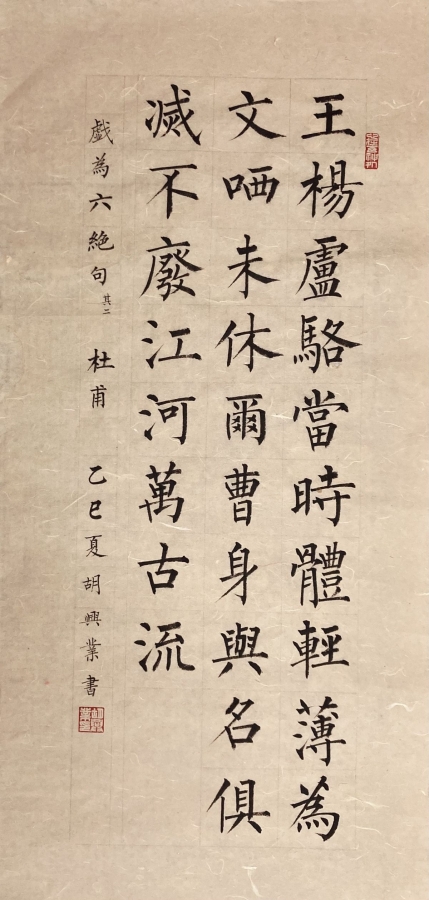 王楊盧駱當時體輕薄為
文哂未休爾曹身與名俱
滅不廢江河萬古流
戲為六絕句其二 杜甫 乙巳夏胡興業書